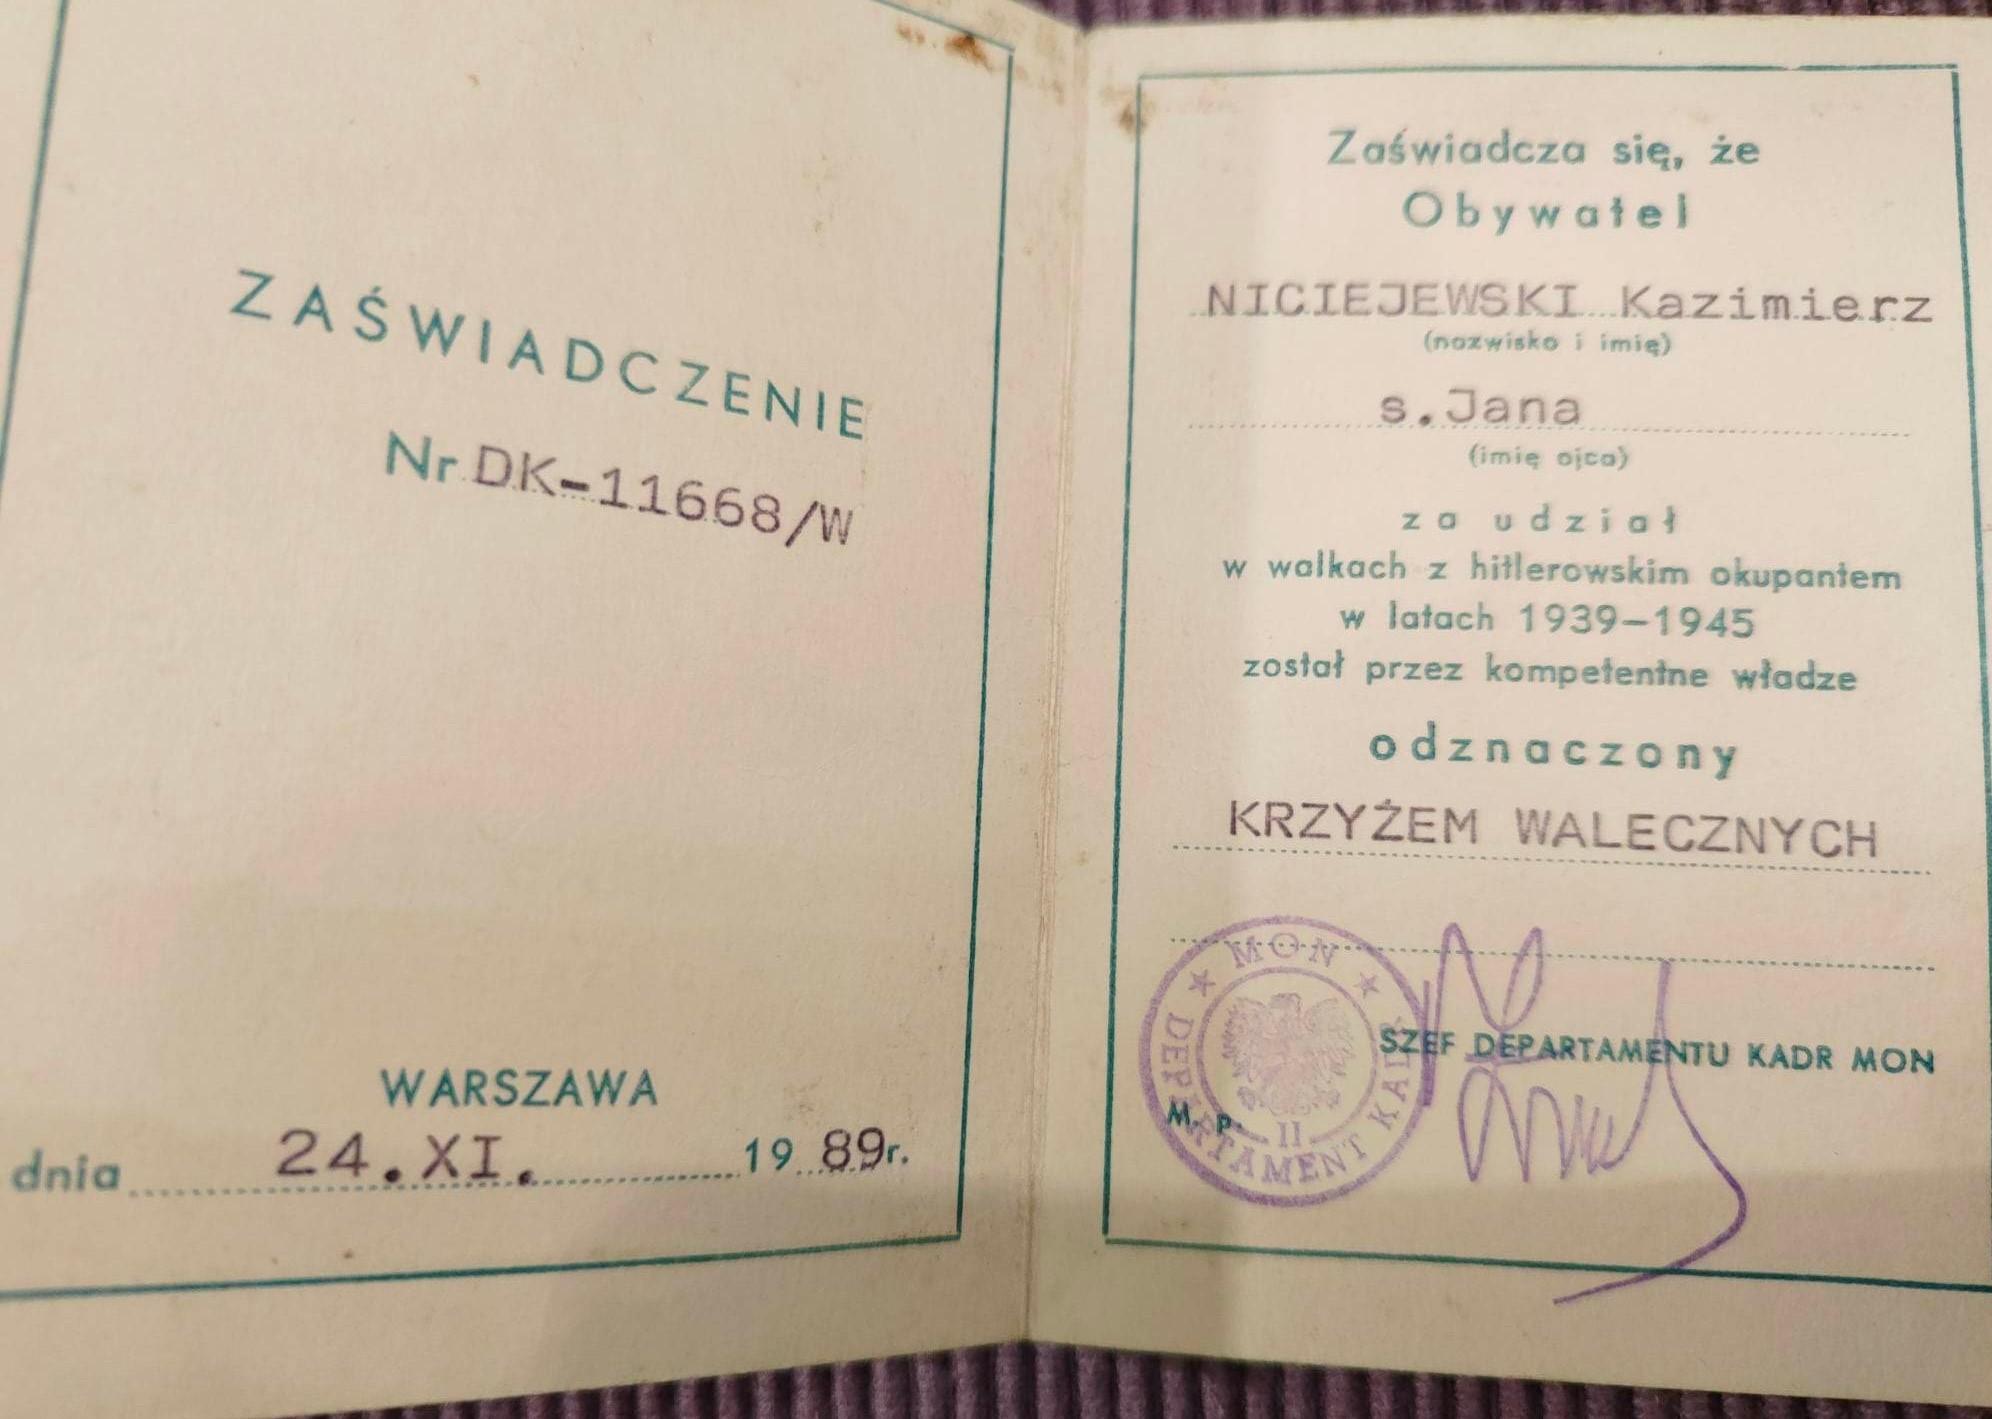 ZAŚWIADCZENIE
Nr DK-11668/W
WARSZAWA
dnia 24.XI. 1989r.
Zaświadcza się, że
Obywatel
NICIEJEWSKI Kazimierz
(nazwisko i imię)
s.Jana
(imię ojca)
za udział
w walkach z hitlerowskim okupantem
w latach 1939-1945
został przez kompetentne władze
odznaczony
KRZYŻEM WALECZNYCH
SZEF DEPARTAMENTU KADR MON
M. p.
MON
DEPARTAMENT KADR
II